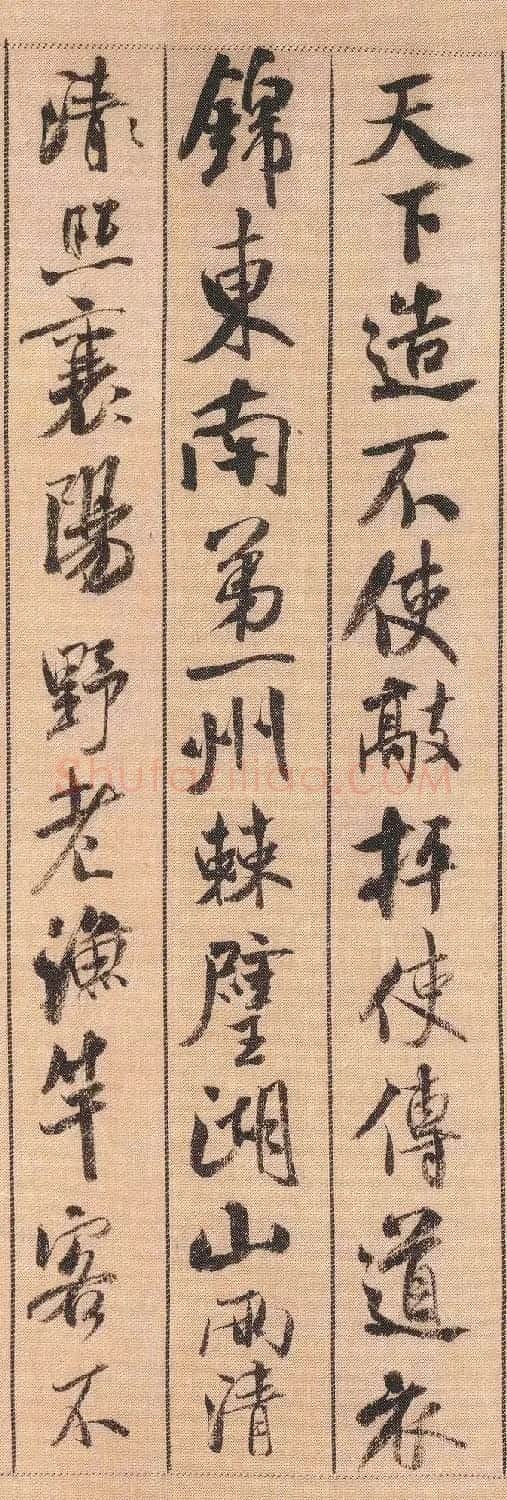 天下造不使敲抨使傳道衣
錦東南第一州棘璧湖山兩清
清照襄陽野老漁竿客不
shufaziliao.COM